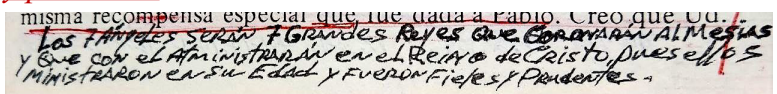 misma recompensa especial que fue dada a Pablo. Creo que Ud.
Los 7 Ángeles serán 7 Grandes Reyes que coronarán al Mesías
y que con el Administrarán en el Reino de Cristo, pues ellos
Ministraron en su Edad y fueron Fieles y Prudentes.